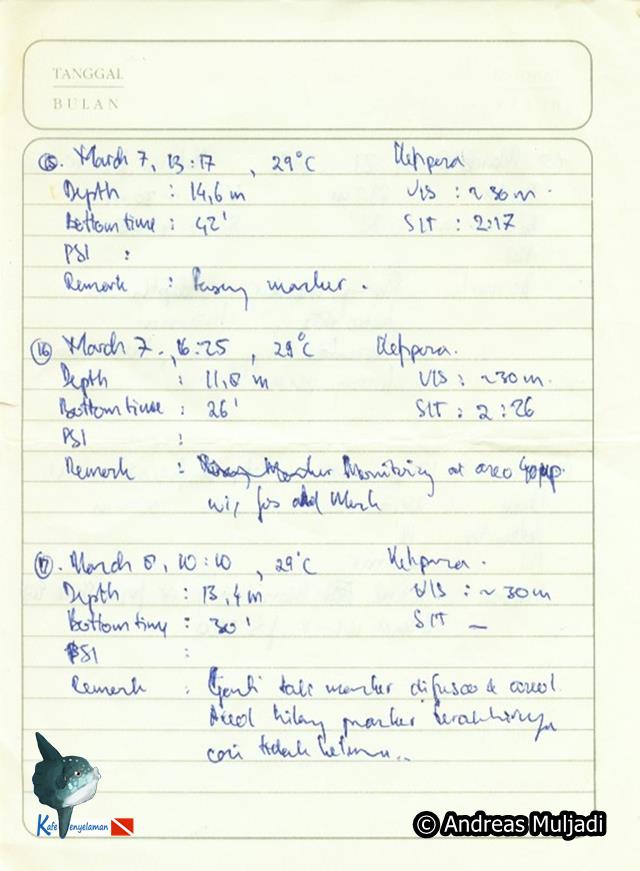 TANGGAL
BULAN
15. March 7, 13:17, 29°C Ketipera
Depth : 14,6 m VIS : ~30 m.
Bottom time : 42' SIT : 2:17
PSI :
Remark : Pasang marker.
16 March 7., 16:25, 29°C
Depth : 11,8 m VIS : ~30 m.
Bottom time : 26' SIT : 2:26
PSI :
Remark : Monitoring at area
17. March 8, 10:10, 29°C
Depth : 13,4 m VIS : ~30 m
Bottom time : 30' SIT –
PSI :
Remark : Ganti tali marker
hilang marker terakhirnya
cari tidak ketemu..
Kafe Penyelaman
© Andreas Muljadi